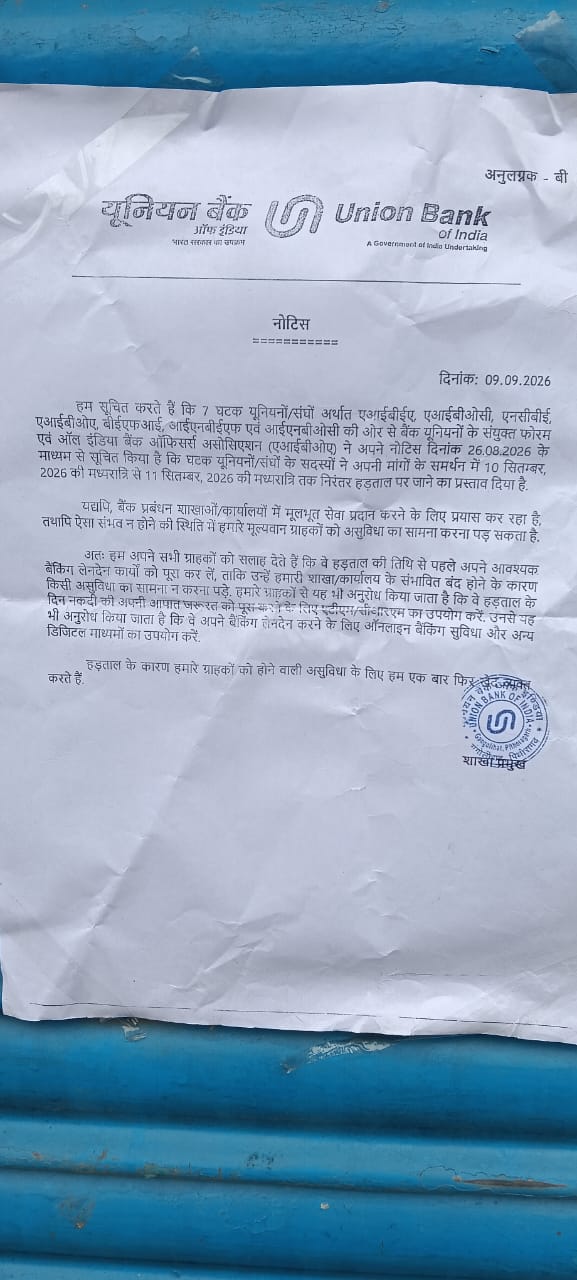 अनुलग्नक - बी
यूनियन बैंक
ऑफ इंडिया
भारत सरकार का उपक्रम
Union Bank
of India
A Government of India Undertaking
नोटिस
===========
दिनांक: 09.09.2026
हम सूचित करते हैं कि 7 घटक यूनियनों/संघों अर्थात एआईबीईए, एआईबीओसी, एनसीबीई,
एआईबीओए, बीईएफआई, आईएनबीईएफ एवं आईएनबीओसी की ओर से बैंक यूनियनों के संयुक्त फोरम
एवं ऑल इंडिया बैंक ऑफिसर्स असोसिएशन (एआईबीओए) ने अपने नोटिस दिनांक 26.08.2026 के
माध्यम से सूचित किया है कि घटक यूनियनों/संघों के सदस्यों ने अपनी मांगों के समर्थन में 10 सितम्बर,
2026 की मध्यरात्रि से 11 सितम्बर, 2026 की मध्यरात्रि तक निरंतर हड़ताल पर जाने का प्रस्ताव दिया है.
यद्यपि, बैंक प्रबंधन शाखाओं/कार्यालयों में मूलभूत सेवा प्रदान करने के लिए प्रयास कर रहा है;
तथापि ऐसा संभव न होने की स्थिति में हमारे मूल्यवान ग्राहकों को असुविधा का सामना करना पड़ सकता है.
अतः हम अपने सभी ग्राहकों को सलाह देते हैं कि वे हड़ताल की तिथि से पहले अपने आवश्यक
बैंकिंग लेनदेन कार्यों को पूरा कर लें, ताकि उन्हें हमारी शाखा/कार्यालय के संभावित बंद होने के कारण
किसी असुविधा का सामना न करना पड़े. हमारे ग्राहकों से यह भी अनुरोध किया जाता है कि वे हड़ताल के
दिन नकदी की अपनी आपात जरूरत को पूरा करने के लिए एटीएम/सीआरएम का उपयोग करें. उनसे यह
भी अनुरोध किया जाता है कि वे अपने बैंकिंग लेनदेन करने के लिए ऑनलाइन बैंकिंग सुविधा और अन्य
डिजिटल माध्यमों का उपयोग करें.
हड़ताल के कारण हमारे ग्राहकों को होने वाली असुविधा के लिए हम एक बार फिर खेद व्यक्त
करते हैं.
UNION BANK OF INDIA
शाखा प्रमुख